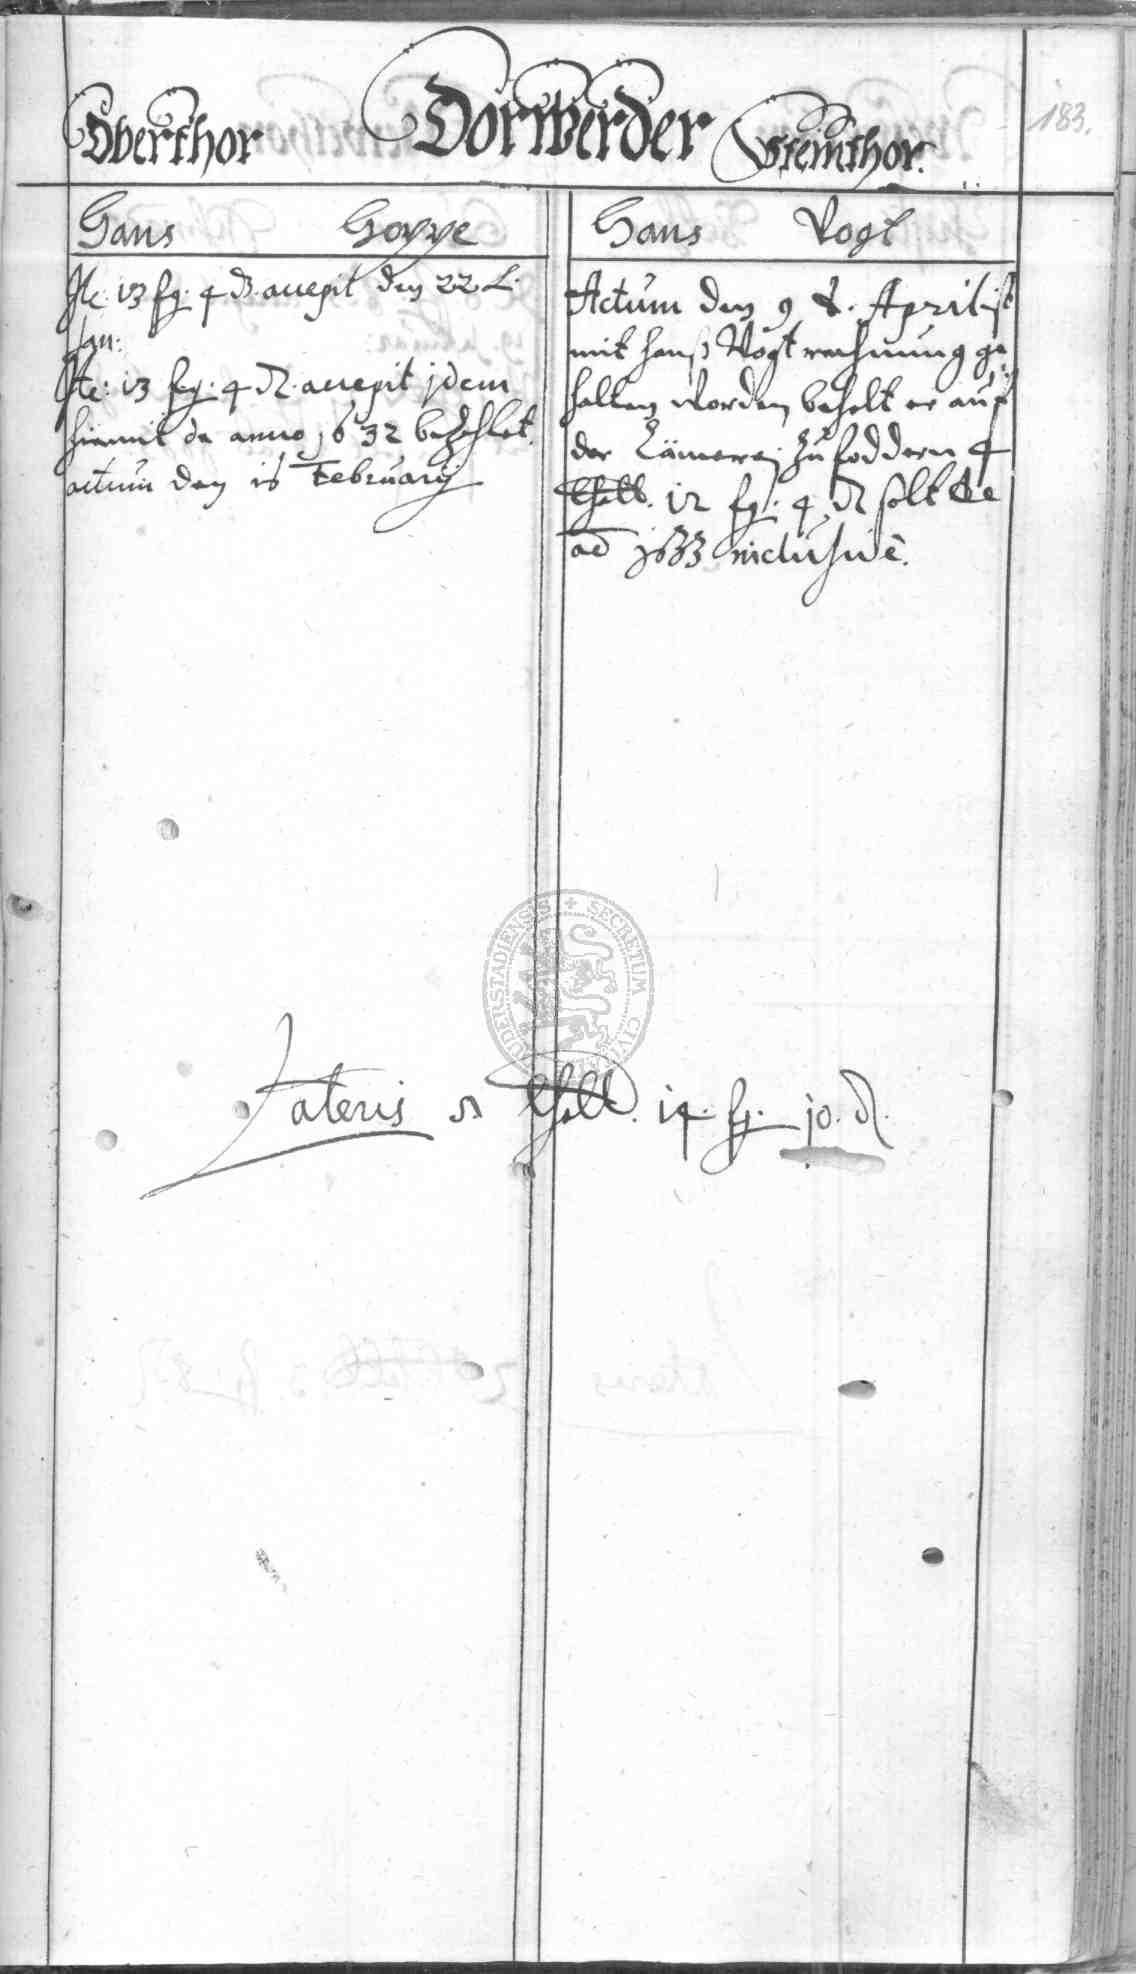 Oberthor Dorwerder Steinthor.
183.
Hans Hoppe
Ite: 13 fg. 4 d. accepit den 22 t.
Jan:
Ite: 13 fg: 4 d. accepit jdem
hiermit de anno 1632 bezahlet.
actum den 16 February
Hans Vogt
Actum den 9 t. April ist
mit hanß Vogt rechnung ge
halten worden behelt er auf
der Cämerej zu foddern 4
thall. 12 fg. 4 d solt de
ad 1633 inclusive.
Lateris 5 thall. 14 fg. 10. d.
SECRETUM CIVI DUDERSTADIENSIS